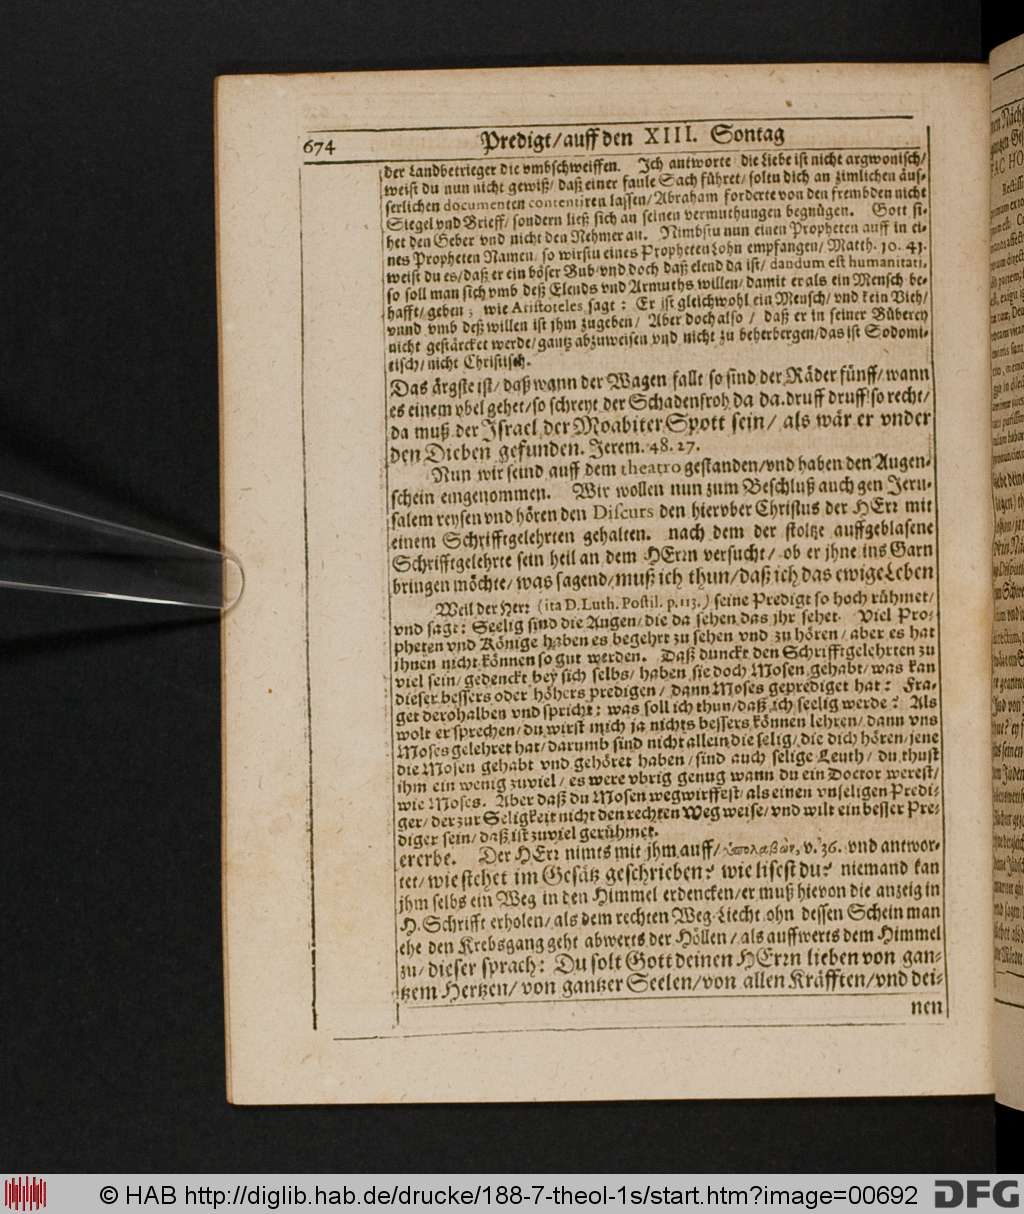 674 Predigt/auff den XIII. Sontag
der Landbetrieger die vmbschweiffen. Jch antworte die Liebe ist nicht argwonisch/
weist du nun nicht gewiß/ daß einer faule Sach führet/ soltu dich an zimlichen äus-
serlichen documenten contentiren lassen/ Abraham forderte von den frembden nicht
Siegel vnd Brieff/ sondern ließ sich an seinen vermuthungen begnügen. Gott si-
het den Geber vnd nicht den Nehmer an. Nimbstu nun einen Propheten auff in ei-
nes Propheten Namen/ so wirstu eines Propheten Lohn empfangen/ Matth. 10. 41.
weist du es/ daß er ein böser Bub/ vnd doch daß elend da ist/ dandum est humanitati,
so soll man sich vmb deß Elends vnd Armuths willen/ damit er als ein Mensch be-
hafft/ geben; wie Aristoteles sagt: Er ist gleichwohl ein Mensch/ vnd kein Vieh/
vnnd vmb deß willen ist jhm zugeben/ Aber doch also/ daß er in seiner Büberey
nicht gestärcket werde/ gantz abzuweisen vnd nicht zu beherbergen/ das ist Sodomi-
tisch/ nicht Christisch.
Das ärgste ist/ daß wann der Wagen fallt so sind der Räder fünff/ wann
es einem vbel gehet/ so schreyt der Schadenfroh da da. druff druff! so recht/
da muß der Israel der Moabiter Spott sein/ als wär er vnder
den Dieben gefunden. Jerem. 48. 27.
Nun wir seind auff dem theatro gestanden/ vnd haben den Augen-
schein eingenommen. Wir wollen nun zum Beschluß auch gen Jeru-
salem reysen vnd hören den Discurs den hierober Christus der HErr mit
einem Schrifftgelehrten gehalten. nach dem der stoltze auffgeblasene
Schrifftgelehrte sein heil an dem HErrn versucht/ ob er jhne ins Garn
bringen möchte/ was sagend/ muß ich thun/ daß ich das ewige Leben
Weil der Herr (ita D. Luth. Postil. p. 113.) seine Predigt so hoch rühmet/
vnd sagt: Seelig sind die Augen/ die da sehen das jhr sehet. Viel Pro-
pheten vnd Könige haben es begehrt zu sehen vnd zu hören/ aber es hat
jhnen nicht können so gut werden. Daß dunckt den Schrifftgelehrten zu
viel sein/ gedenckt bey sich selbs/ haben sie doch Mosen gehabt/ was kan
dieser bessers oder höhers predigen/ dann Moses geprediget hat: Fra-
get derohalben vnd spricht: was soll ich thun/ daß ich seelig werde? Als
wolt er sprechen/ du wirst mich ja nichts bessers können lehren/ dann vns
Moses gelehret hat/ darumb sind nicht allein die selig/ die dich hören/ jene
die Mosen gehabt vnd gehöret haben/ sind auch selige Leuth/ du thust
jhm ein wenig zuviel/ es were vbrig genug wann du ein Doctor werest/
wie Moses. Aber daß du Mosen wegwirffest/ als einen vnseligen Predi-
ger/ der zur Seligkeit nicht den rechten Weg weise/ vnd wilt ein besser Pre-
diger sein/ daß ist zuviel gerühmet.
ererbe. Der HErr nimts mit jhm auff/ ὑπολαβὼν, v. 36. vnd antwor-
tet/ wie stehet im Gesätz geschrieben? wie lisest du? niemand kan
jhm selbs ein Weg in den Himmel erdencken/ er muß hievon die anzeig in
H. Schrifft erholen/ als dem rechten Weg-Liecht ohn dessen Schein man
ehe den Krebsgang geht abwerts der Höllen/ als auffwerts dem Himmel
zu/ dieser sprach: Du solt Gott deinen HErrn lieben von gan-
tzem Hertzen/ von gantzer Seelen/ von allen Kräfften/ vnd dei-
nen
© HAB http://diglib.hab.de/drucke/188-7-theol-1s/start.htm?image=00692 DFG